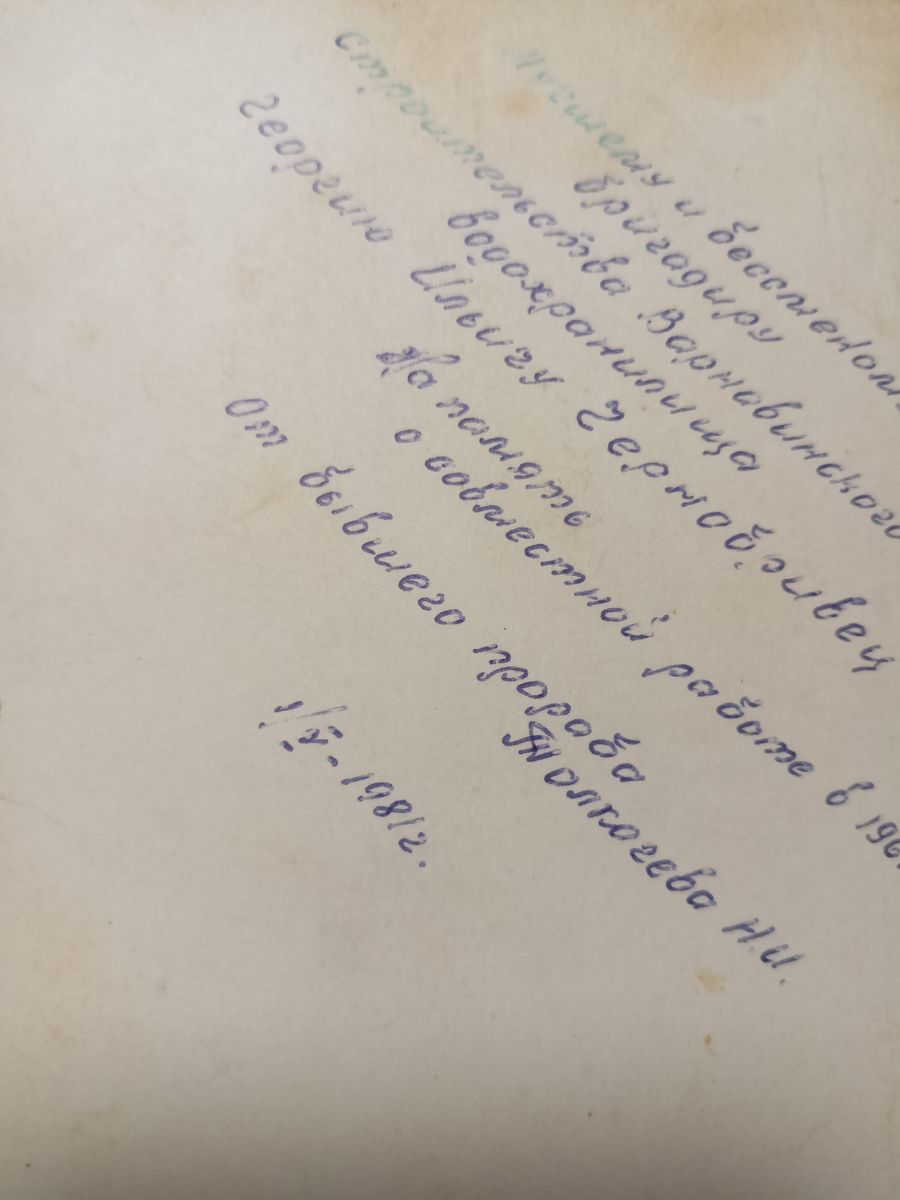 Лучшему и бессменном
бригадиру
строительства Варнавинского
водохранилища
Георгию Ильичу
На память
о совместной работе в 196
От бывшего прораба
Н.И.
1/V-1981г.